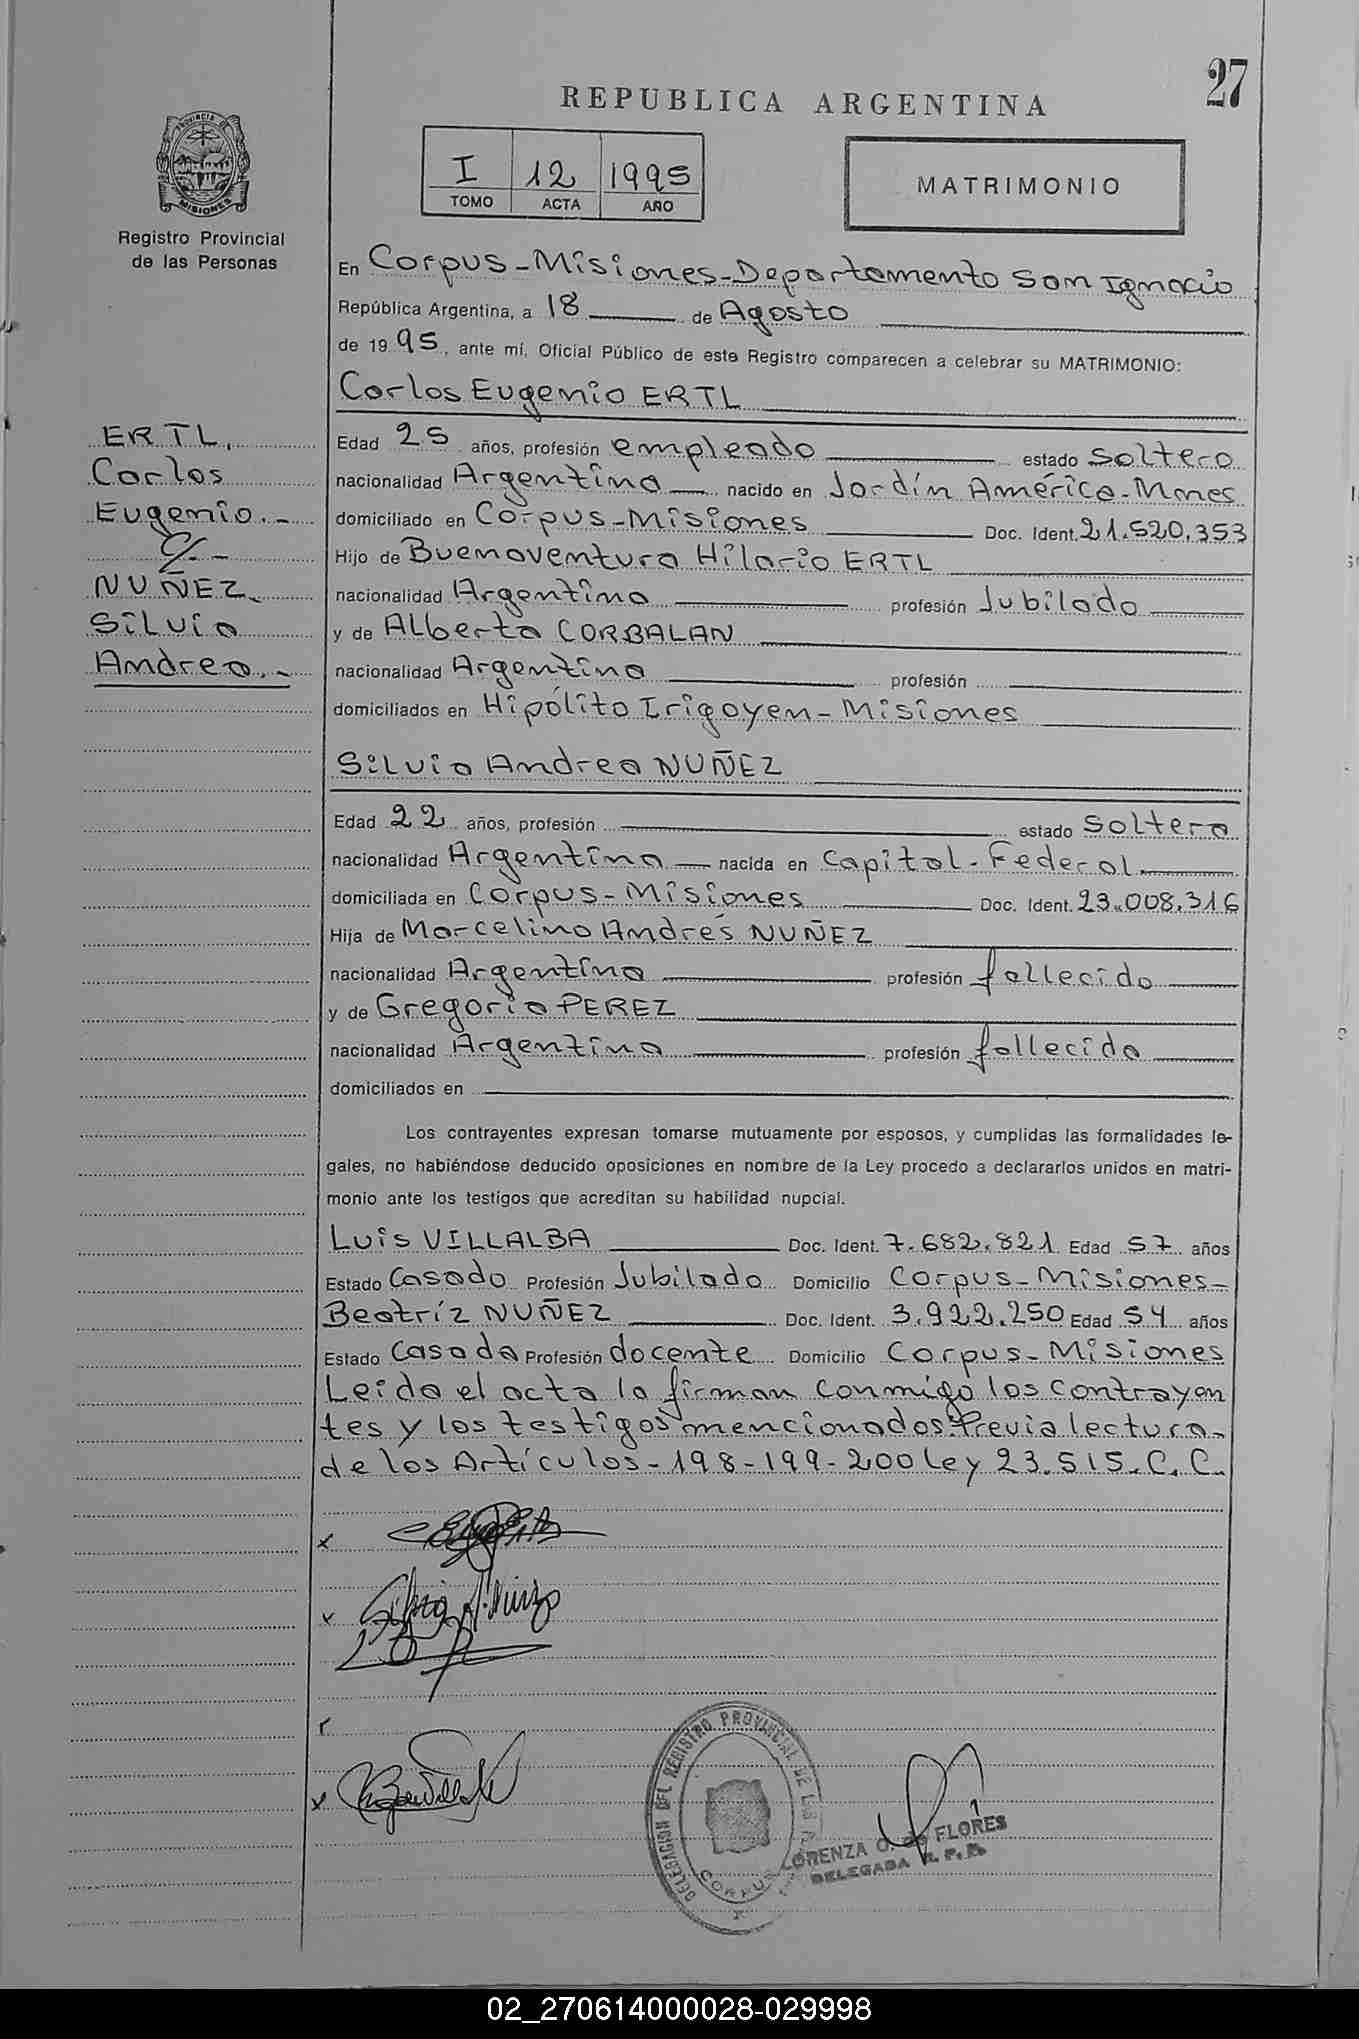 27
REPUBLICA ARGENTINA
I 12 1995
TOMO ACTA AÑO
MATRIMONIO
PROVINCIA DE
MISIONES
Registro Provincial
de las Personas
En Corpus-Misiones-Departamento San Ignacio
República Argentina, a 18 de Agosto
de 19 95, ante mí, Oficial Público de este Registro comparecen a celebrar su MATRIMONIO:
Carlos Eugenio ERTL
ERTL,
Carlos
Eugenio.-
c/.-
NUÑEZ
Silvia
Andrea.-
Edad 25 años, profesión empleado estado soltero
nacionalidad Argentina nacido en Jardín América-Mnes
domiciliado en Corpus-Misiones Doc. Ident. 21.520.353
Hijo de Buenaventura Hilario ERTL
nacionalidad Argentina profesión Jubilado
y de Alberta CORBALAN
nacionalidad Argentina profesión
domiciliados en Hipólito Irigoyen-Misiones
Silvia Andrea NUÑEZ
Edad 22 años, profesión estado soltera
nacionalidad Argentina nacida en Capital-Federal
domiciliada en Corpus-Misiones Doc. Ident. 23.008.316
Hija de Marcelino Andrés NUÑEZ
nacionalidad Argentina profesión fallecido
y de Gregoria PEREZ
nacionalidad Argentina profesión fallecida
domiciliados en
Los contrayentes expresan tomarse mutuamente por esposos, y cumplidas las formalidades le-
gales, no habiéndose deducido oposiciones en nombre de la Ley procedo a declararlos unidos en matri-
monio ante los testigos que acreditan su habilidad nupcial.
Luis VILLALBA Doc. Ident. 7.682.821 Edad 57 años
Estado Casado Profesión Jubilado Domicilio Corpus-Misiones-
Beatríz NUÑEZ Doc. Ident. 3.922.250 Edad 54 años
Estado Casada Profesión docente Domicilio Corpus-Misiones
Leida el acta la firman conmigo los contrayen
tes y los testigos mencionados. Previa lectura-
de los Artículos-198-199-200 ley 23.515.C.C.
DELEGACION DEL REGISTRO PROVINCIAL DE LAS
CORPUS
LORENZA O. de FLORES
DELEGADA R. P. P.
02_270614000028-029998